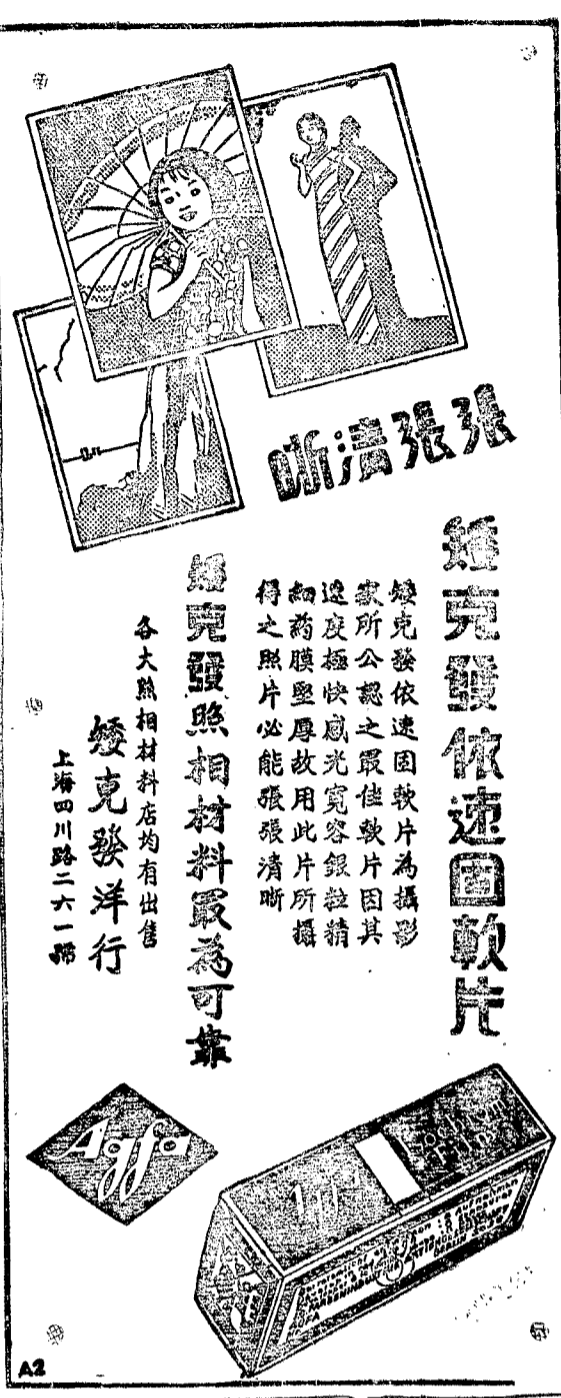 張張清晰
矮克發依速固軟片
矮克發依速固軟片為攝影
家所公認之最佳軟片因其
速度極快感光寬容銀粒精
細葯膜堅厚故用此片所攝
得之照片必能張張清晰
矮克發照相材料最為可靠
各大照相材料店均有出售
矮克發洋行
上海四川路二六一號
Agfa
Isochrom
Film
AGFA
A2